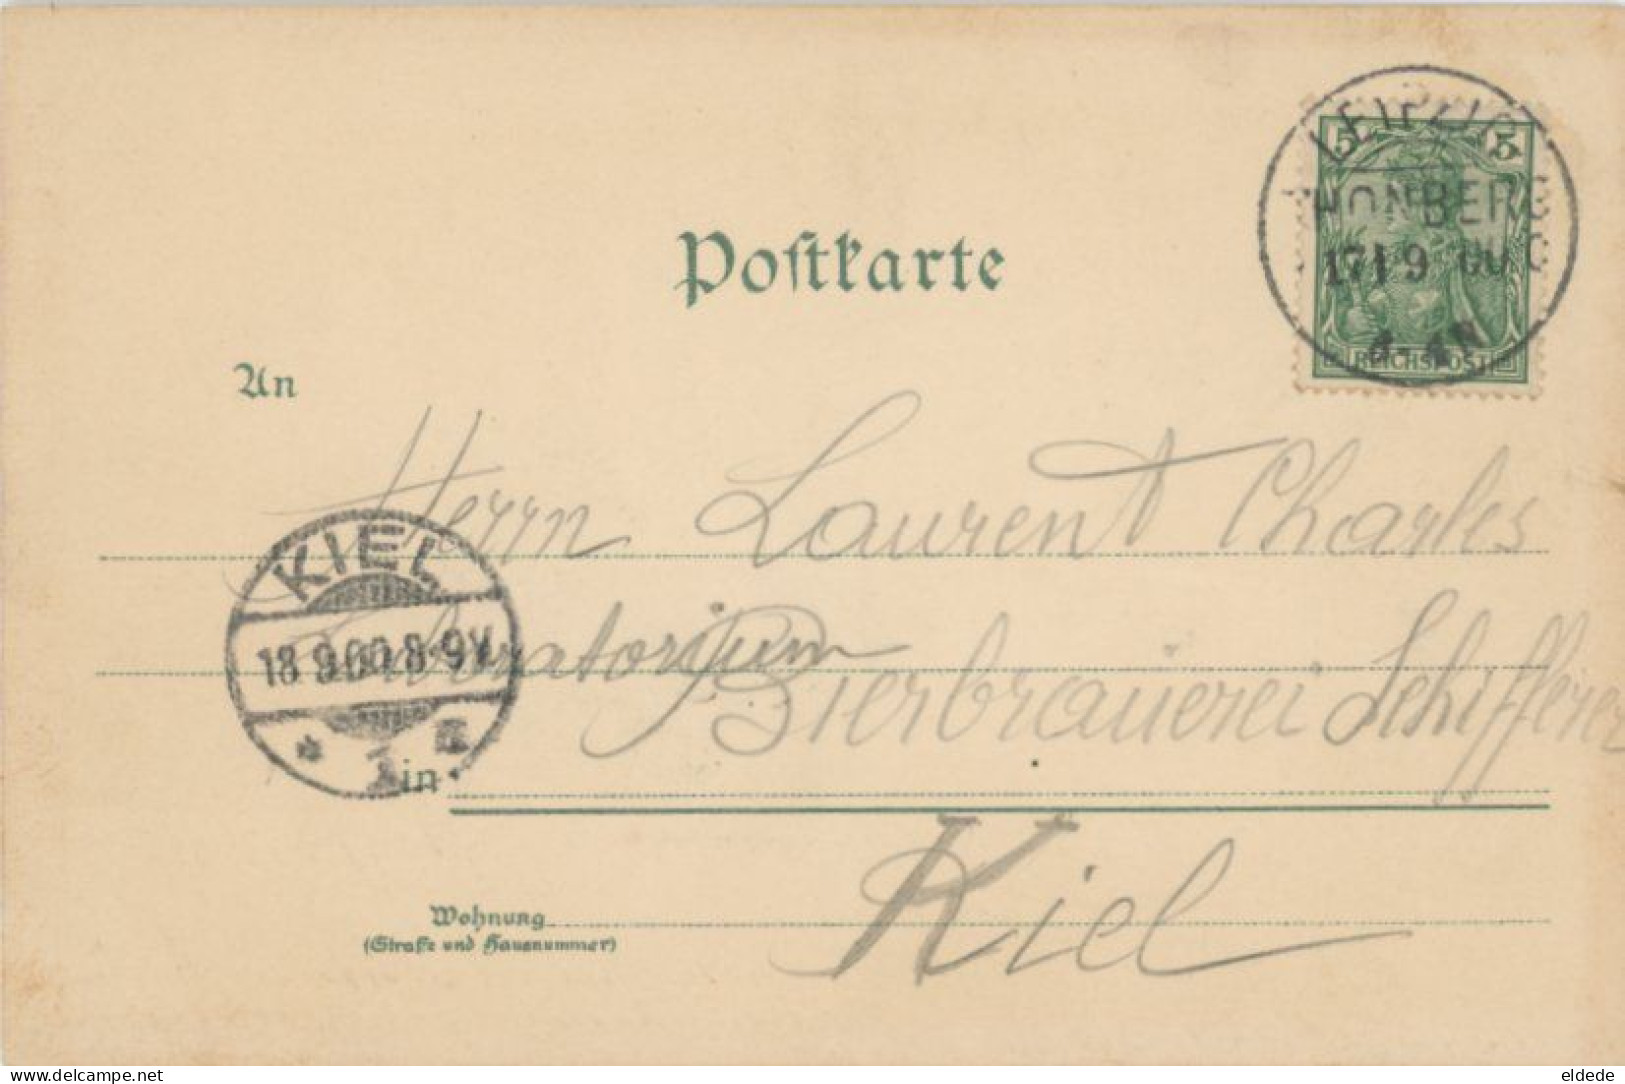 LEIPZIG
THONBERG
17/9 00
5 5
REICHSPOST
Postkarte
An
Herrn Laurent Charles
Laboratorium
Bierbrauerei Schifferer
KIEL
18.9.00.8-9V.
* 1
in
Kiel
Wohnung
(Straße und Hausnummer)
www.delcampe.net
eldede